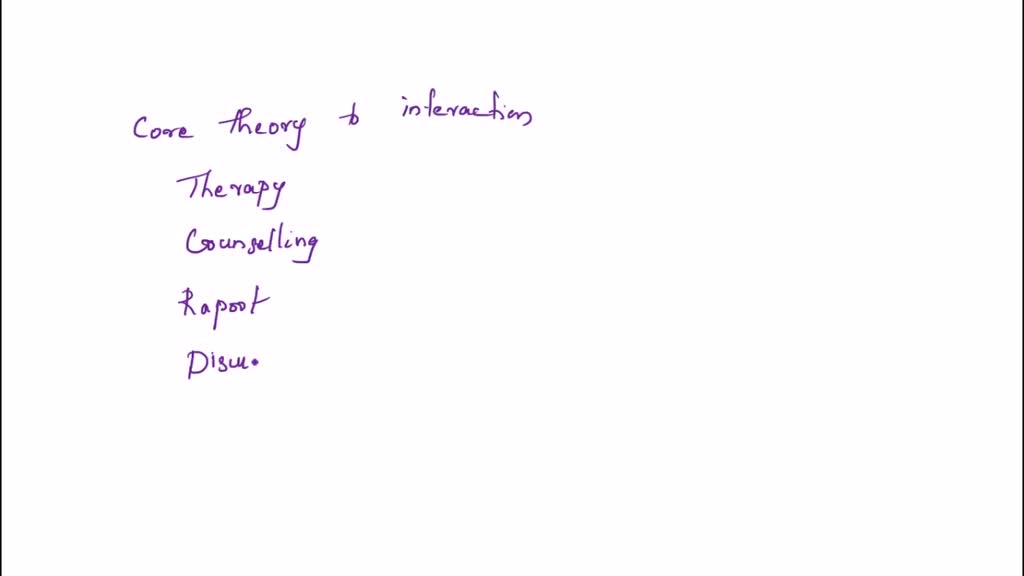 Core theory to interaction
Therapy
Counselling
Rapoot
Discu